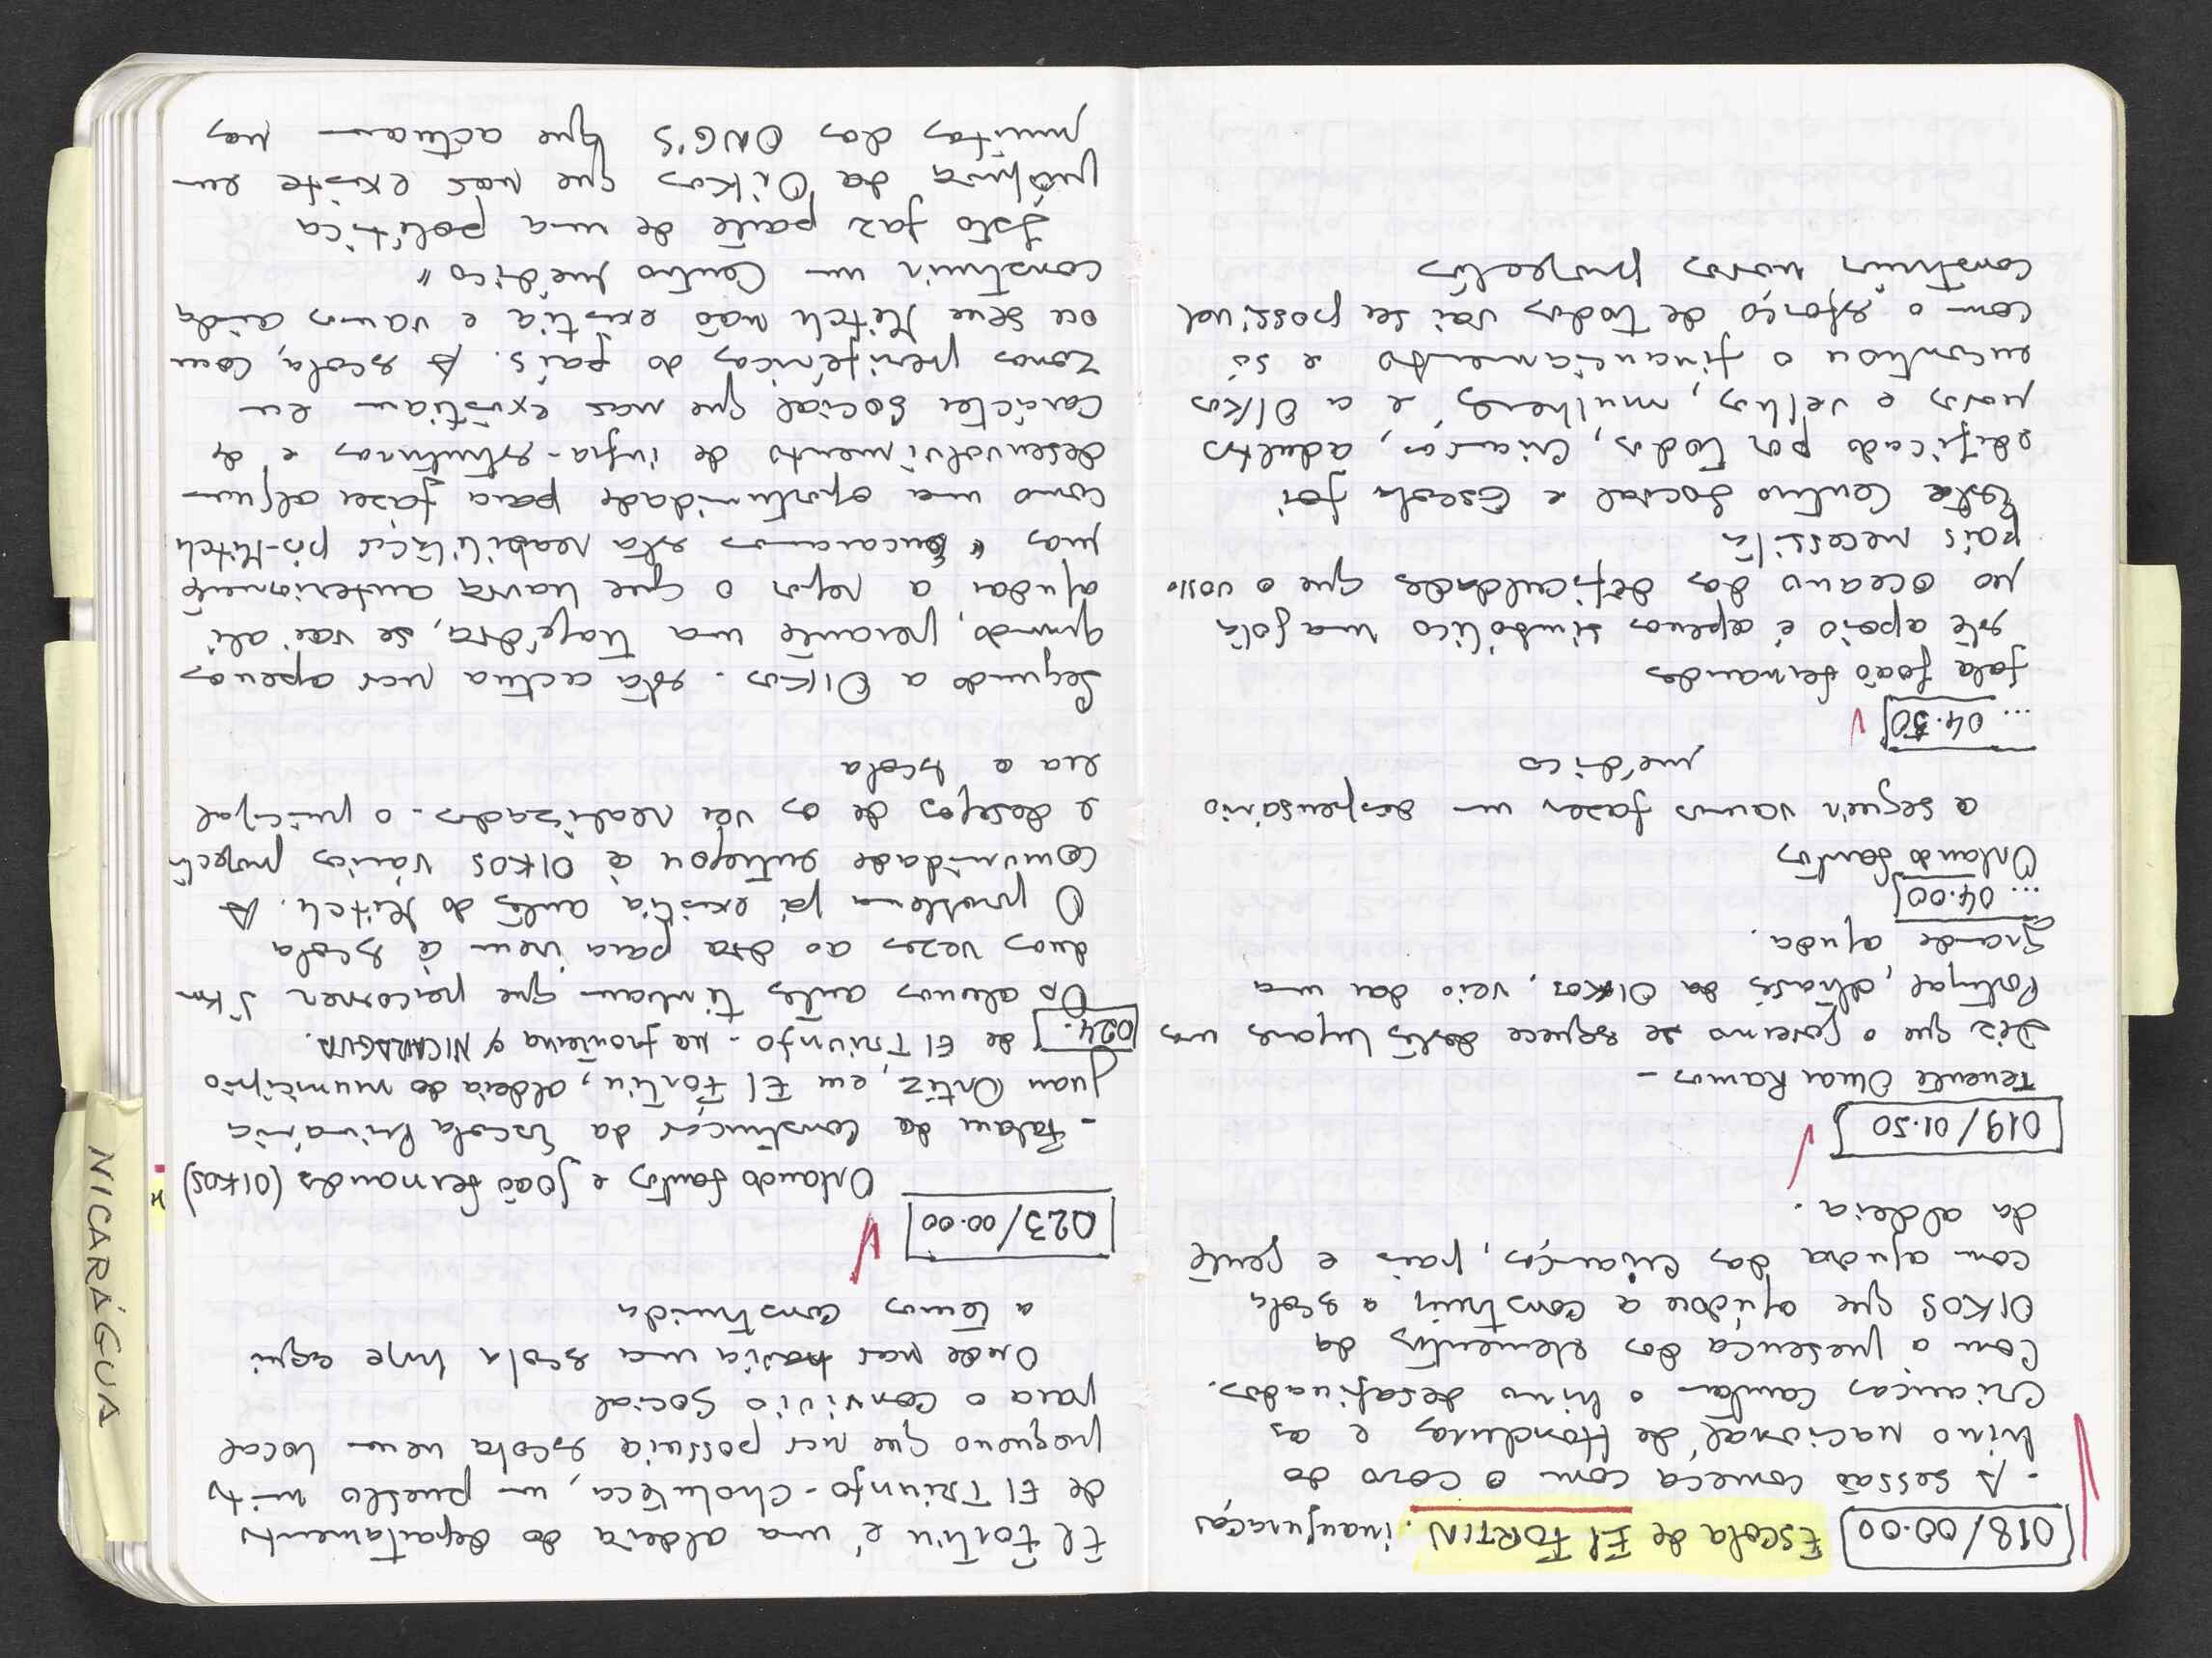 018/00.00 Escola de El FORTIN. inauguração
- A sessão começa com o coro do
hino nacional de Honduras e as
crianças cantam o hino desafinados.
Com a presença dos elementos da
OIKOS que ajudou a construir a escola
com ajuda das crianças, pais e gente
da aldeia.
019/01.50
Tenente Omar Ramos -
Diz que o governo se esquece destes lugares mas
Portugal, através da OIKOS, veio dar uma
grande ajuda.
... 04.00
Orlando Santos
a seguir vamos fazer um dispensário
médico
... 04.50
fala João Fernandes
este apoio é apenas simbólico uma gota
no oceano das dificuldades que o vosso
país necessita
Este Centro Social e Escola foi
edificado por todos, crianças, adultos
novos e velhos, mulheres, e a OIKOS
encontrou o financiamento e só
com o esforço de todos vai ser possível
construir novos projectos
El Fortin é uma aldeia do departamento
de El Triunfo - Choluteca, um pueblo mito
pequeno que não possuia escola nem local
para o convivio social
Onde não havia uma escola hoje aqui
a temos construida
023/00.00
Orlando Santos e João Fernandes (OIKOS)
- Falam da construção da Escola Primária
Juan Ortiz, em El Fortin, aldeia do município
de El Triunfo - na fronteira c/ NICARAGUA.
024.
Os alunos antes tinham que percorrer 5 km
duas vezes ao dia para irem à escola
O problema já existia antes do Mitch. A
Comunidade entregou à OIKOS vários projects
e desejos de os ver realizados - o principal
era a escola
Segundo a OIKOS - esta actua não apenas
quando, perante uma tragédia, se vai ali
ajudar a repor o que havia anteriormente
mas "encaramos esta reabilitação pós-Mitch
como uma oportunidade para fazer algum
desenvolvimento de infra-estruturas e de
carácter social que não existiam em
zonas periféricas do país. A escola, com
ou sem Mitch não existia e vamos ainda
construir um Centro médico"
Isto faz parte de uma política
própria da Oikos que não existe em
muitas das ONG'S que actuam nas
NICARÁGUA